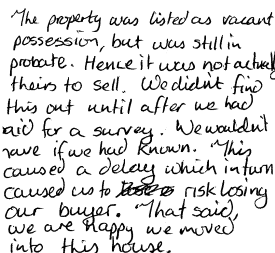 The property was listed as vacant
possession, but was still in
probate. Hence it was not actually
theirs to sell. We didn't find
this out until after we had
aid for a survey. We wouldn't
have if we had known. This
caused a delay which in turn
caused us to risk losing
our buyer. That said,
we are happy we moved
into this house.